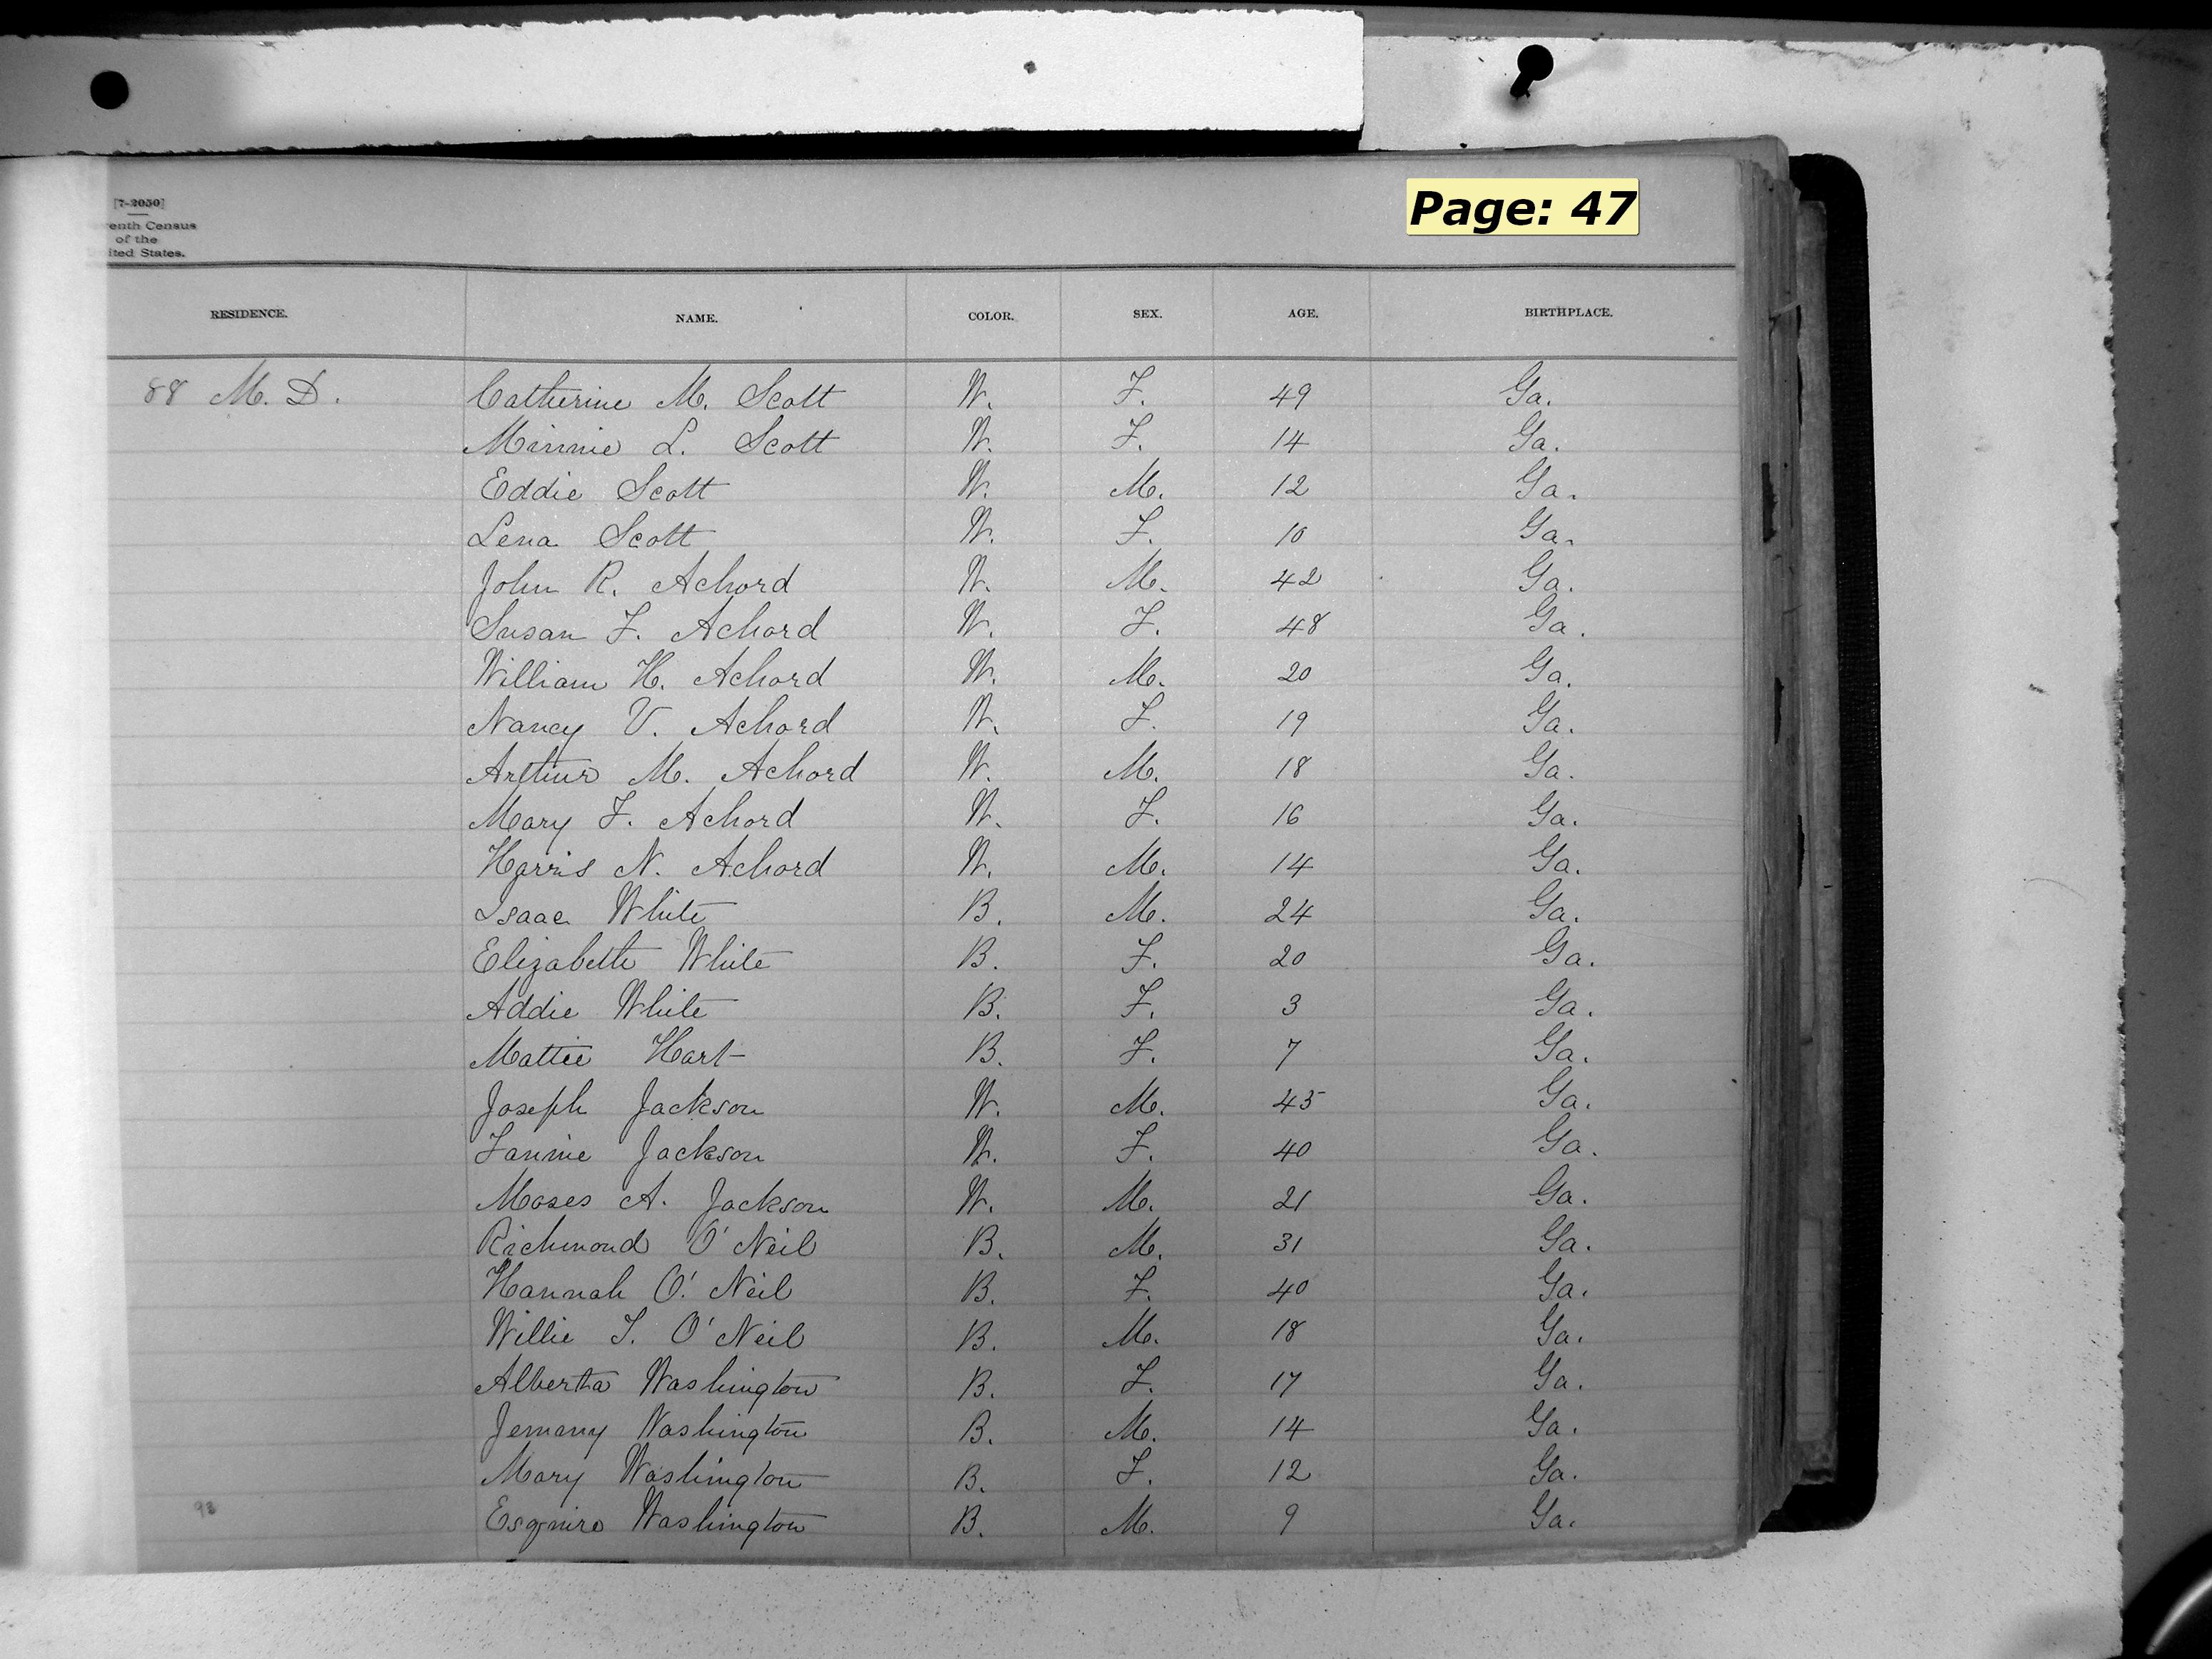 [7-2050]
venth Census
of the
ited States.
Page: 47
RESIDENCE. NAME. COLOR. SEX. AGE. BIRTHPLACE.
88 M. D. Catherine M. Scott W. F. 49 Ga.
Minnie L. Scott W. F. 14 Ga.
Eddie Scott W. M. 12 Ga.
Lena Scott W. F. 10 Ga.
John R. Achord W. M. 42 Ga.
Susan F. Achord W. F. 48 Ga.
William H. Achord W. M. 20 Ga.
Nancy V. Achord W. F. 19 Ga.
Arthur M. Achord W. M. 18 Ga.
Mary F. Achord W. F. 16 Ga.
Harris N. Achord W. M. 14 Ga.
Isaac White B. M. 24 Ga.
Elizabeth White B. F. 20 Ga.
Addie White B. F. 3 Ga.
Mattie Hart B. F. 7 Ga.
Joseph Jackson W. M. 45 Ga.
Fannie Jackson W. F. 40 Ga.
Moses A. Jackson W. M. 21 Ga.
Richmond O'Neil B. M. 31 Ga.
Hannah O'Neil B. F. 40 Ga.
Willie T. O'Neil B. M. 18 Ga.
Alberta Washington B. F. 17 Ga.
Jemany Washington B. M. 14 Ga.
Mary Washington B. F. 12 Ga.
93 Esquire Washington B. M. 9 Ga.